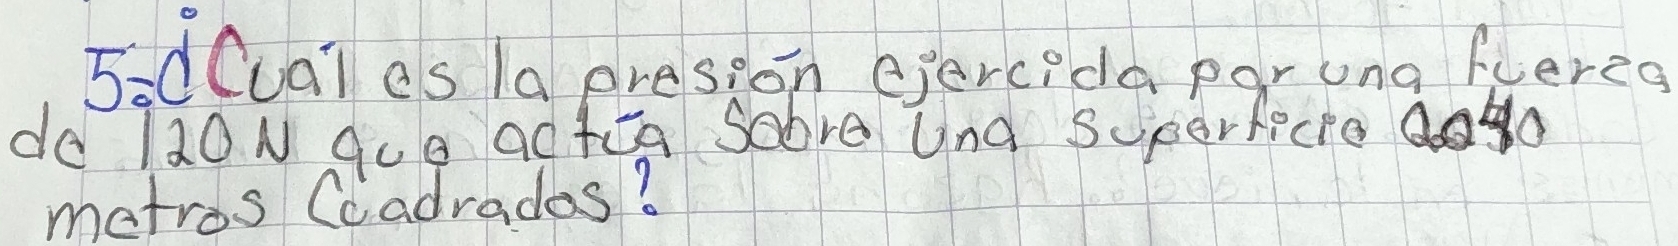 5=¿Cuál es la presión ejercida por una fuerza
de 120 N que actúa sobre una superficie
metros Cuadrados?